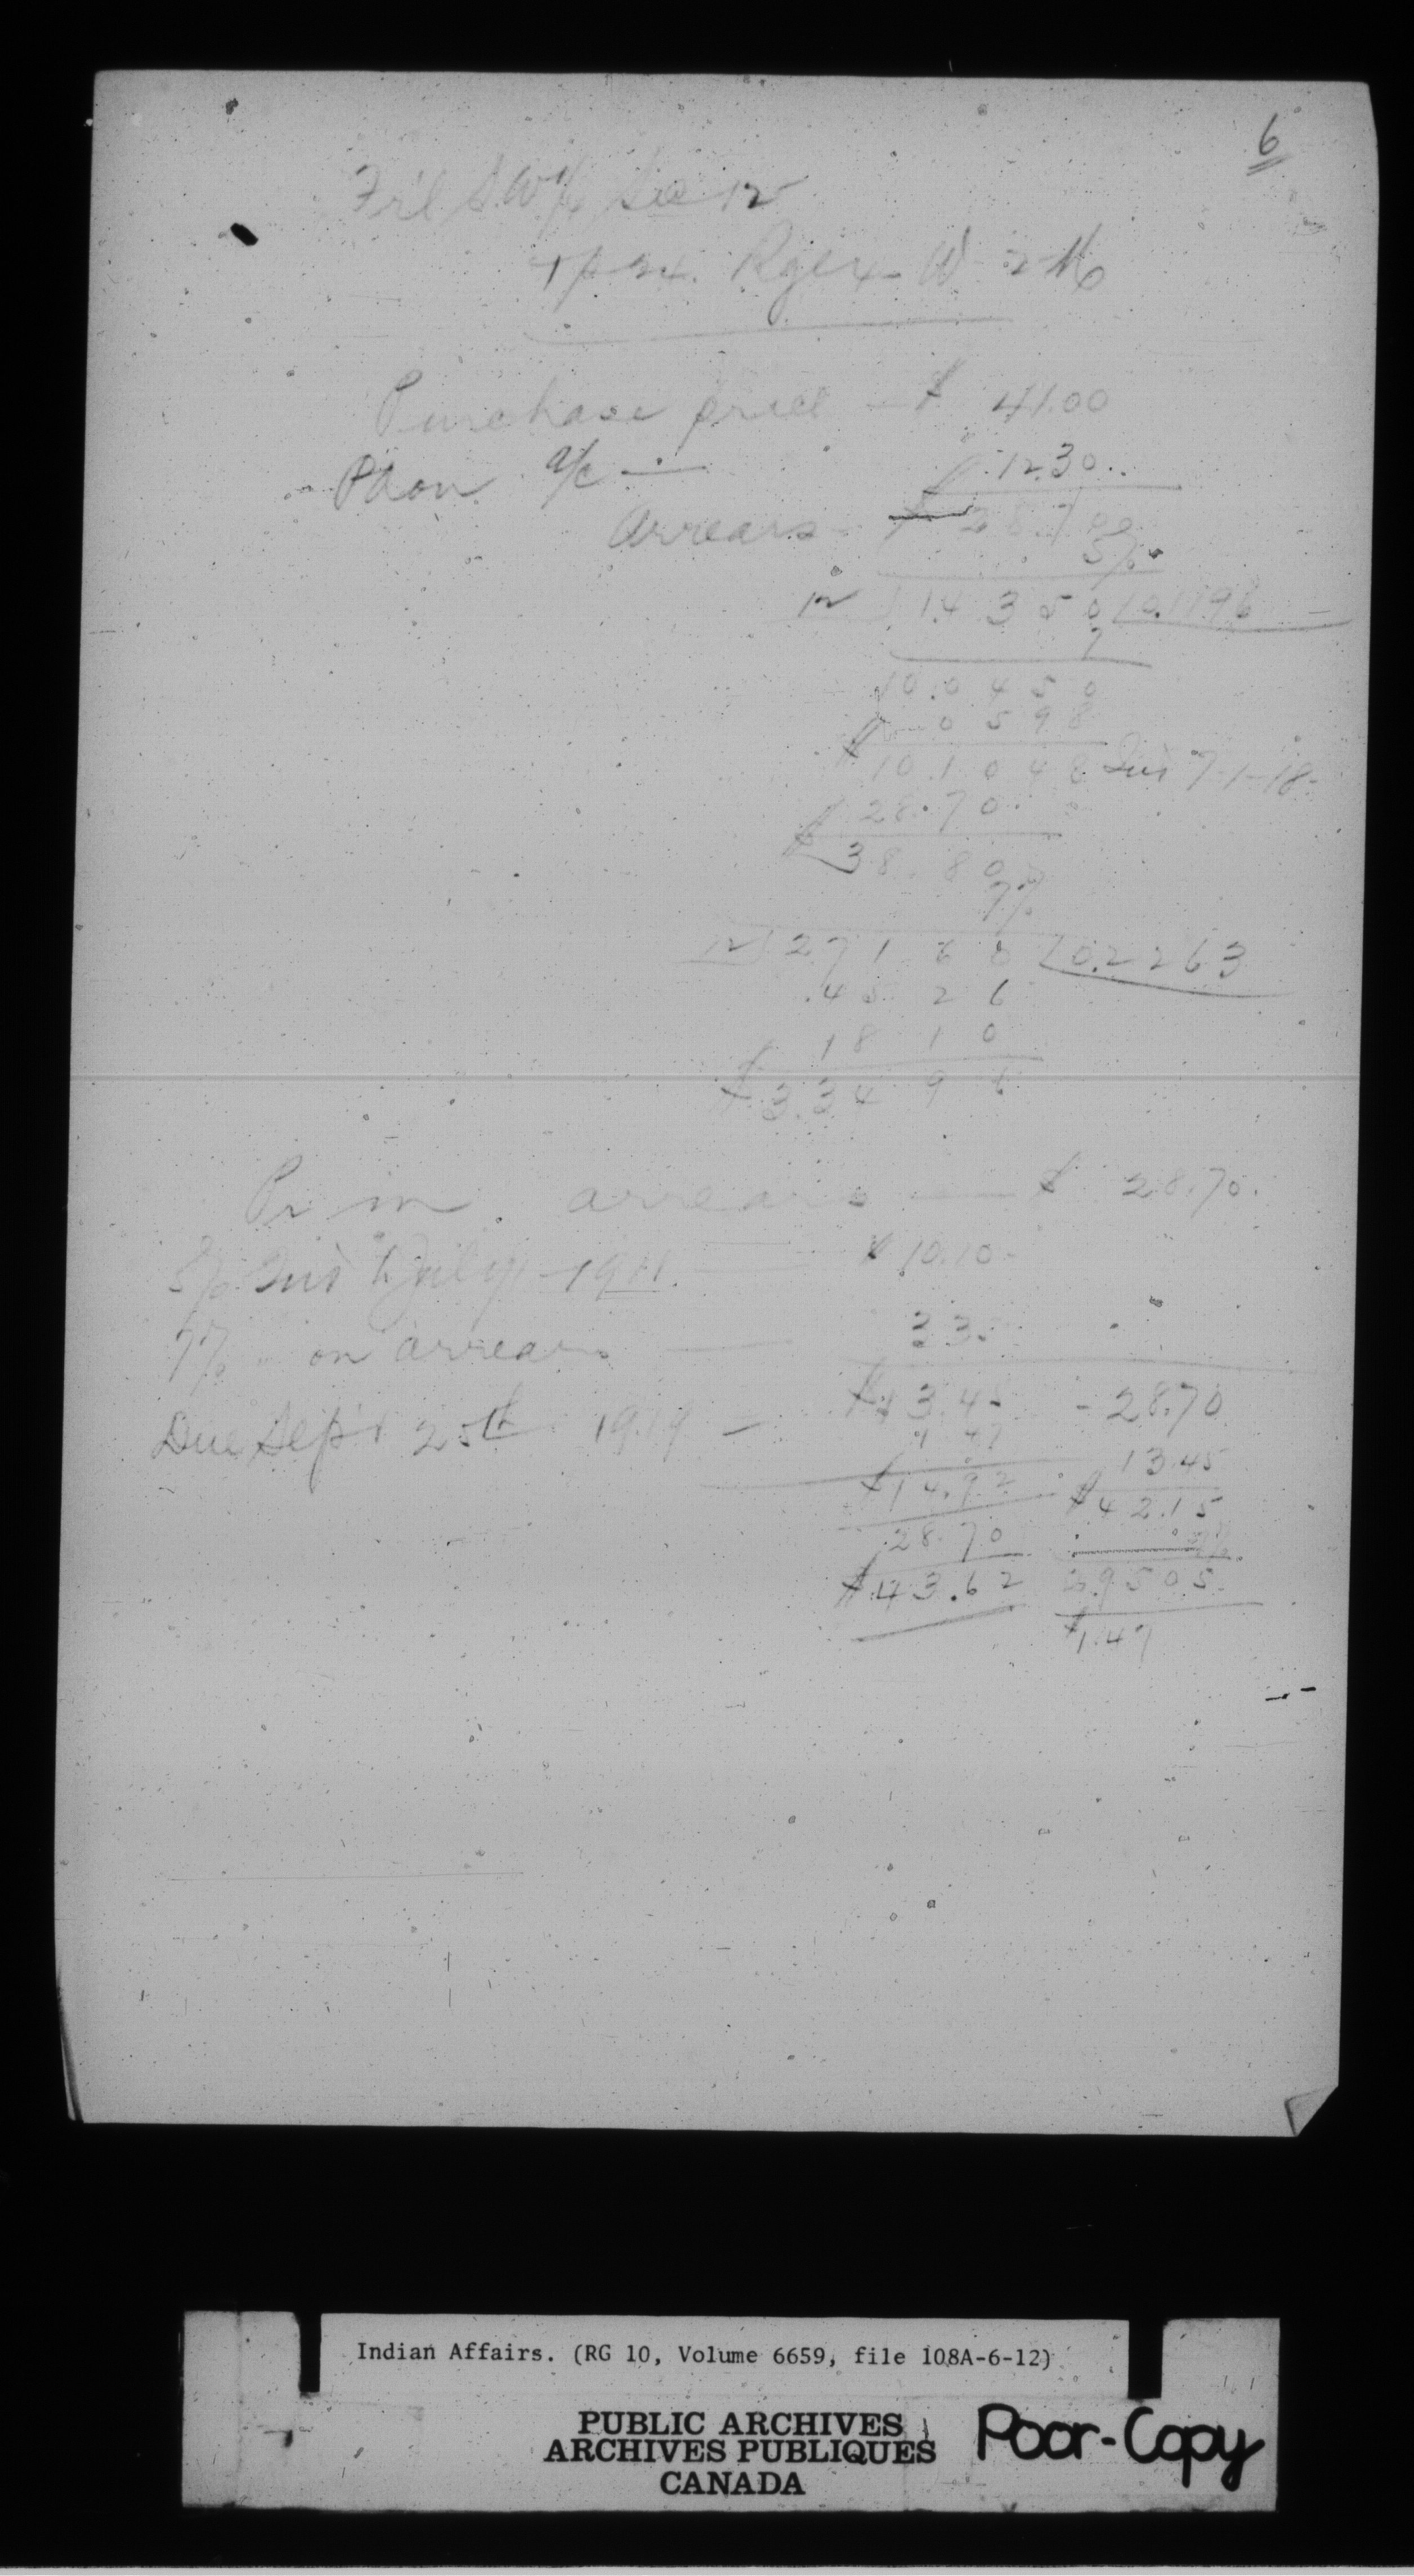 6
Frl S.W¼ Sec 12
Tp 24. Rge 4 W 2 M
Purchase price — $ 41.00
Pd on a/c — 12.30
Arrears — $ 28.700
5%
12 ) 1.4350 ( 0.1196
7
10.0450
0598
$ 10.1048 Int 7-1-18-
28.70
$ 38.80
7%
12 ) 2.7160 ( 0.2263
.4526
1810
$ 3.3496
Prin. arrears — $ 28.70.
5% Int July 1911. — $ 10.10
7% on arrears — 3 35
Due Sept 25th 1919 — $ 13.45 - 28.70
1 47 13.45
$ 14.92 $ 42.15
28.70 7%
$ 43.62 2.9505
$ 1.47
Indian Affairs. (RG 10, Volume 6659, file 108A-6-12)
PUBLIC ARCHIVES
ARCHIVES PUBLIQUES
CANADA
Poor-Copy